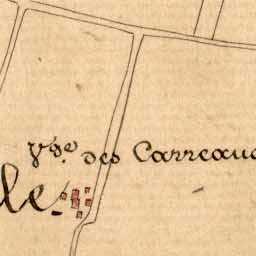 des Carreaux
le